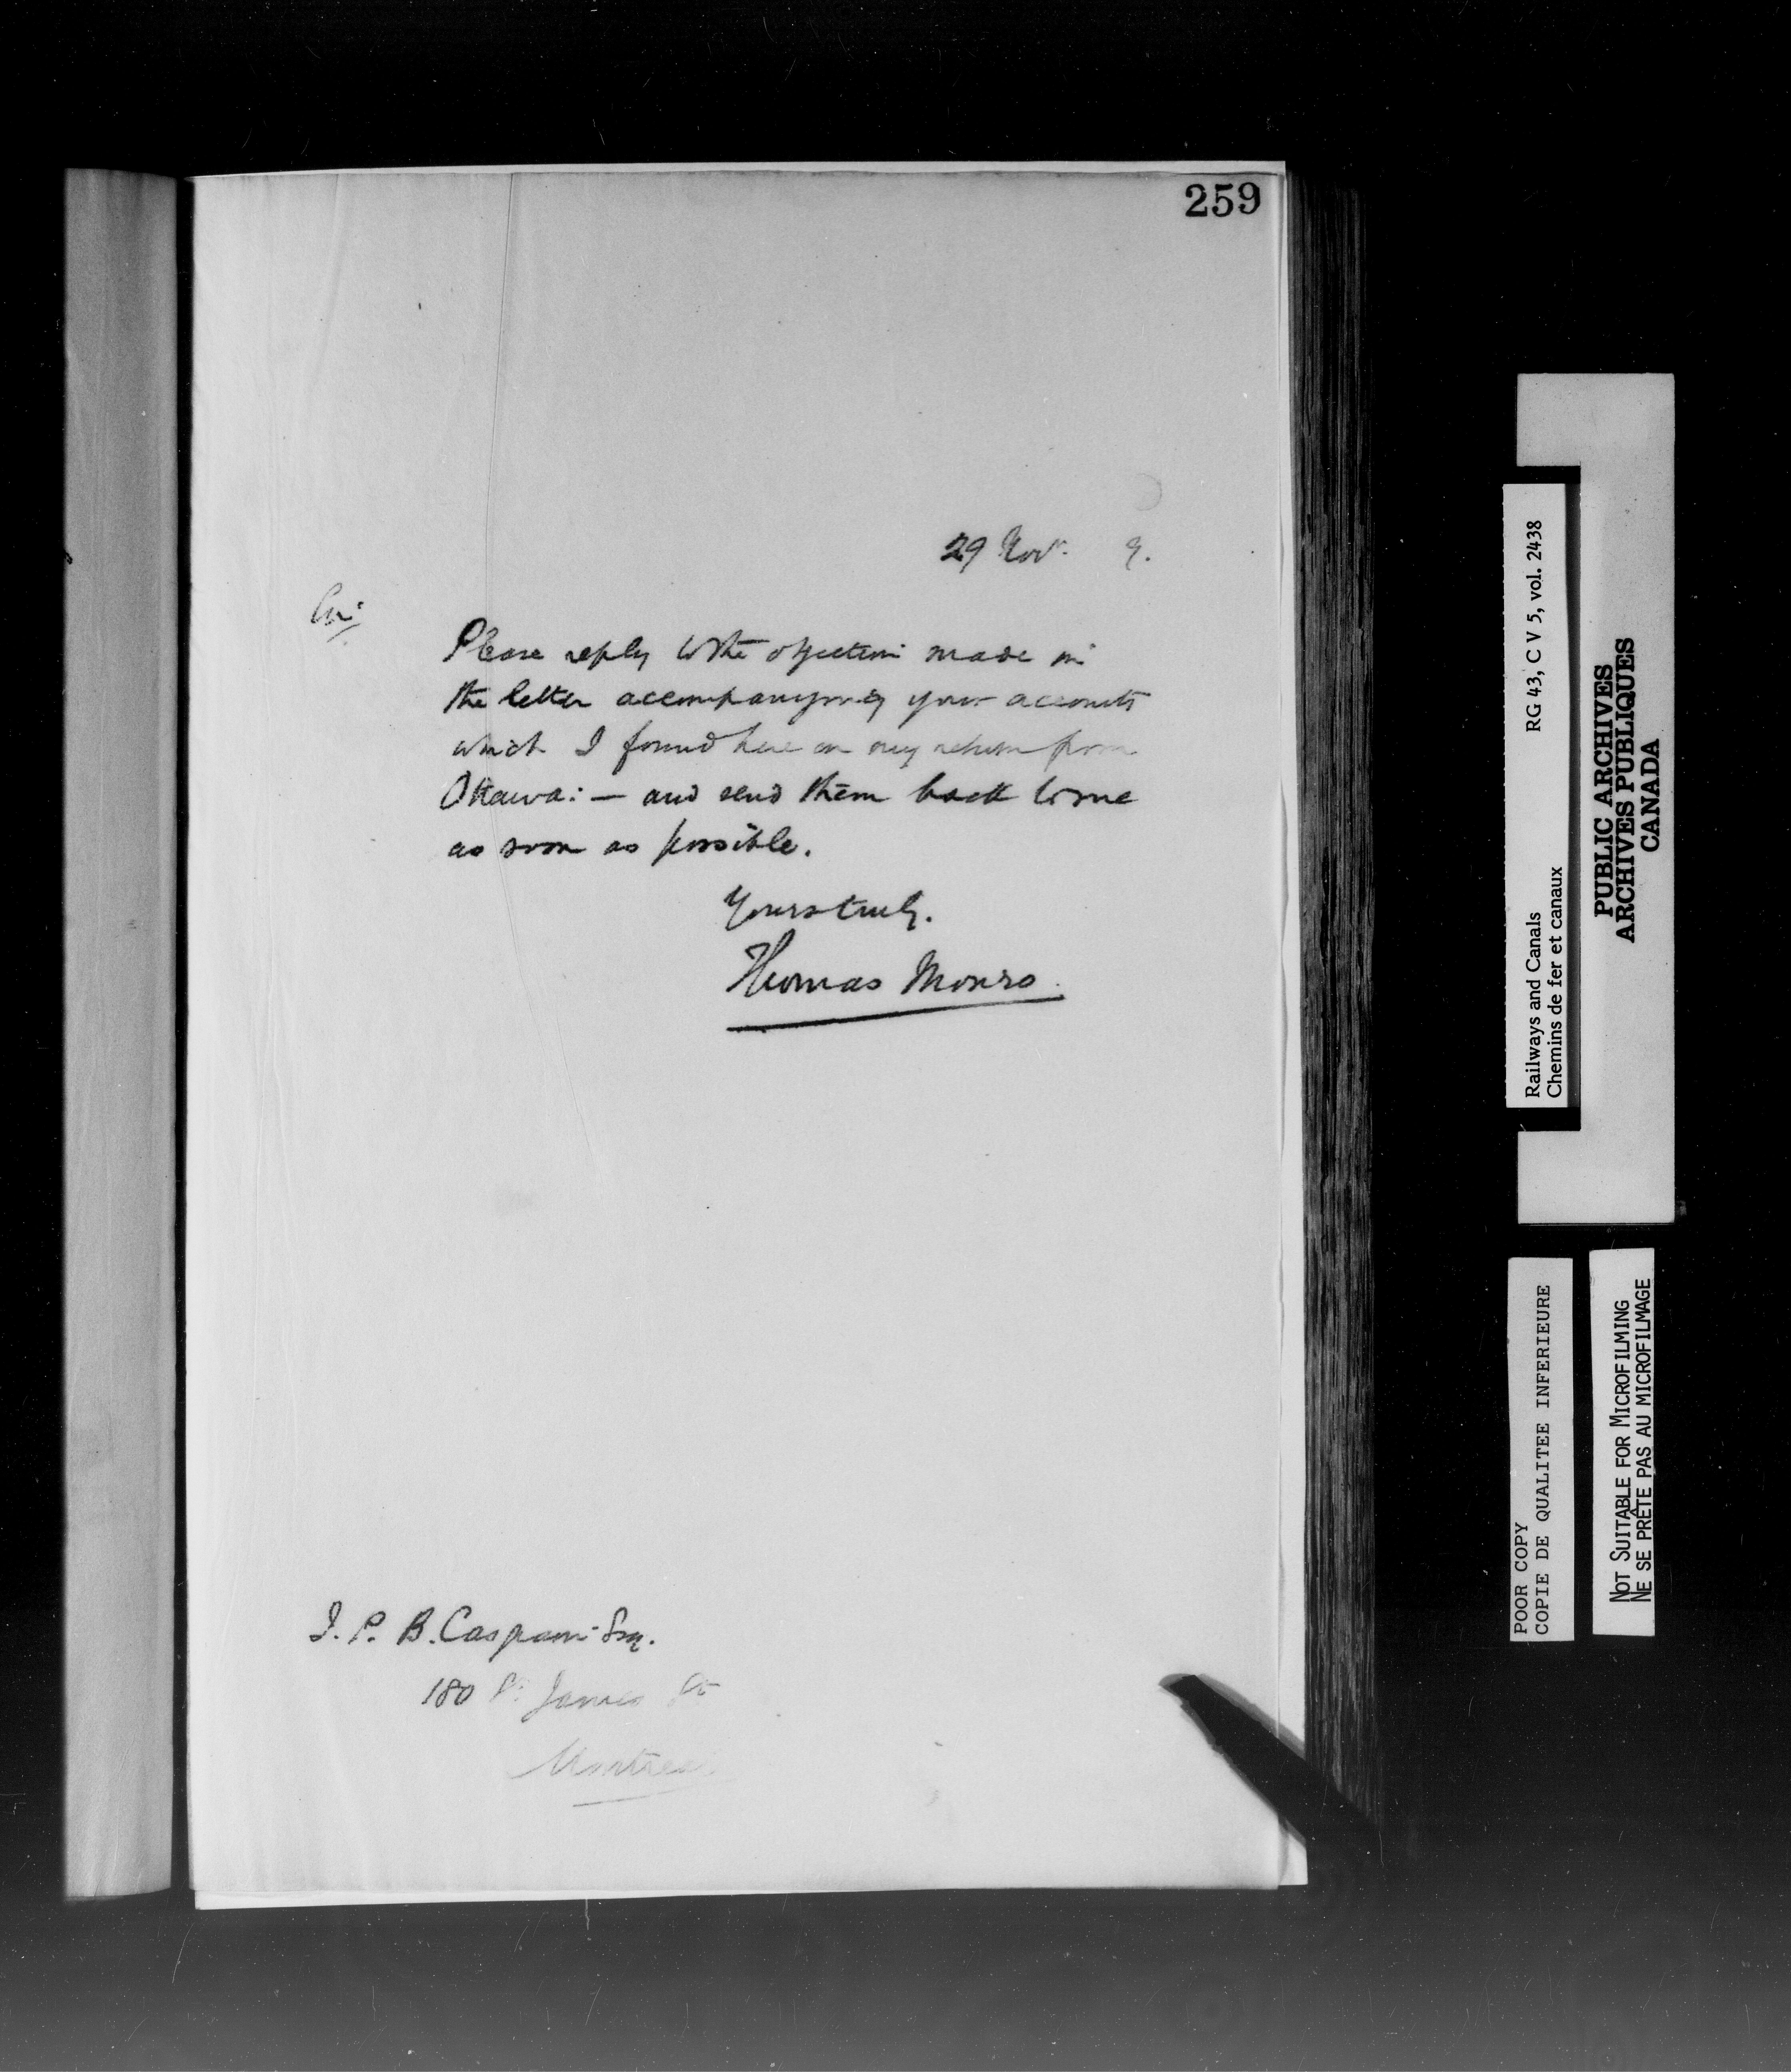 259
29 Novr. 9.
Sir
Please reply to the objection made in
the letter accompanying your accounts
which I found here on my return from
Ottawa: — and send them back to me
as soon as possible.
Yours truly.
Thomas Monro.
J. P. B. Casgrain Esq.
180 St James St
Montreal
Railways and Canals RG 43, C V 5, vol. 2438
Chemins de fer et canaux
PUBLIC ARCHIVES
ARCHIVES PUBLIQUES
CANADA
POOR COPY
COPIE DE QUALITEE INFERIEURE
NOT SUITABLE FOR MICROFILMING
NE SE PRÊTE PAS AU MICROFILMAGE